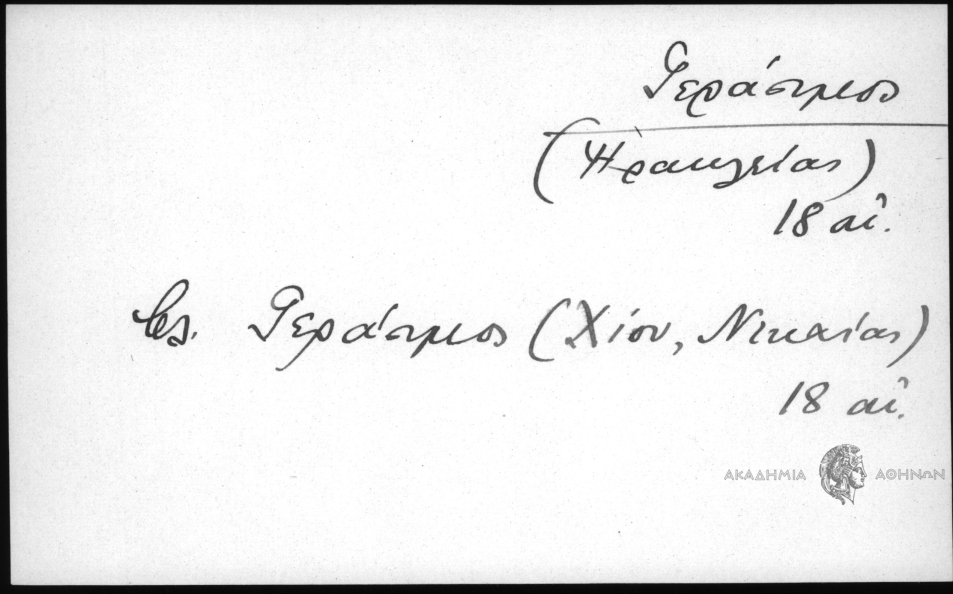 Γεράσιμος
(Ἡρακλείας)
18 αἰ.
βλ. Γεράσιμος (Χίου, Νικαίας)
18 αἰ.
ΑΚΑΔΗΜΙΑ ΑΘΗΝΩΝ